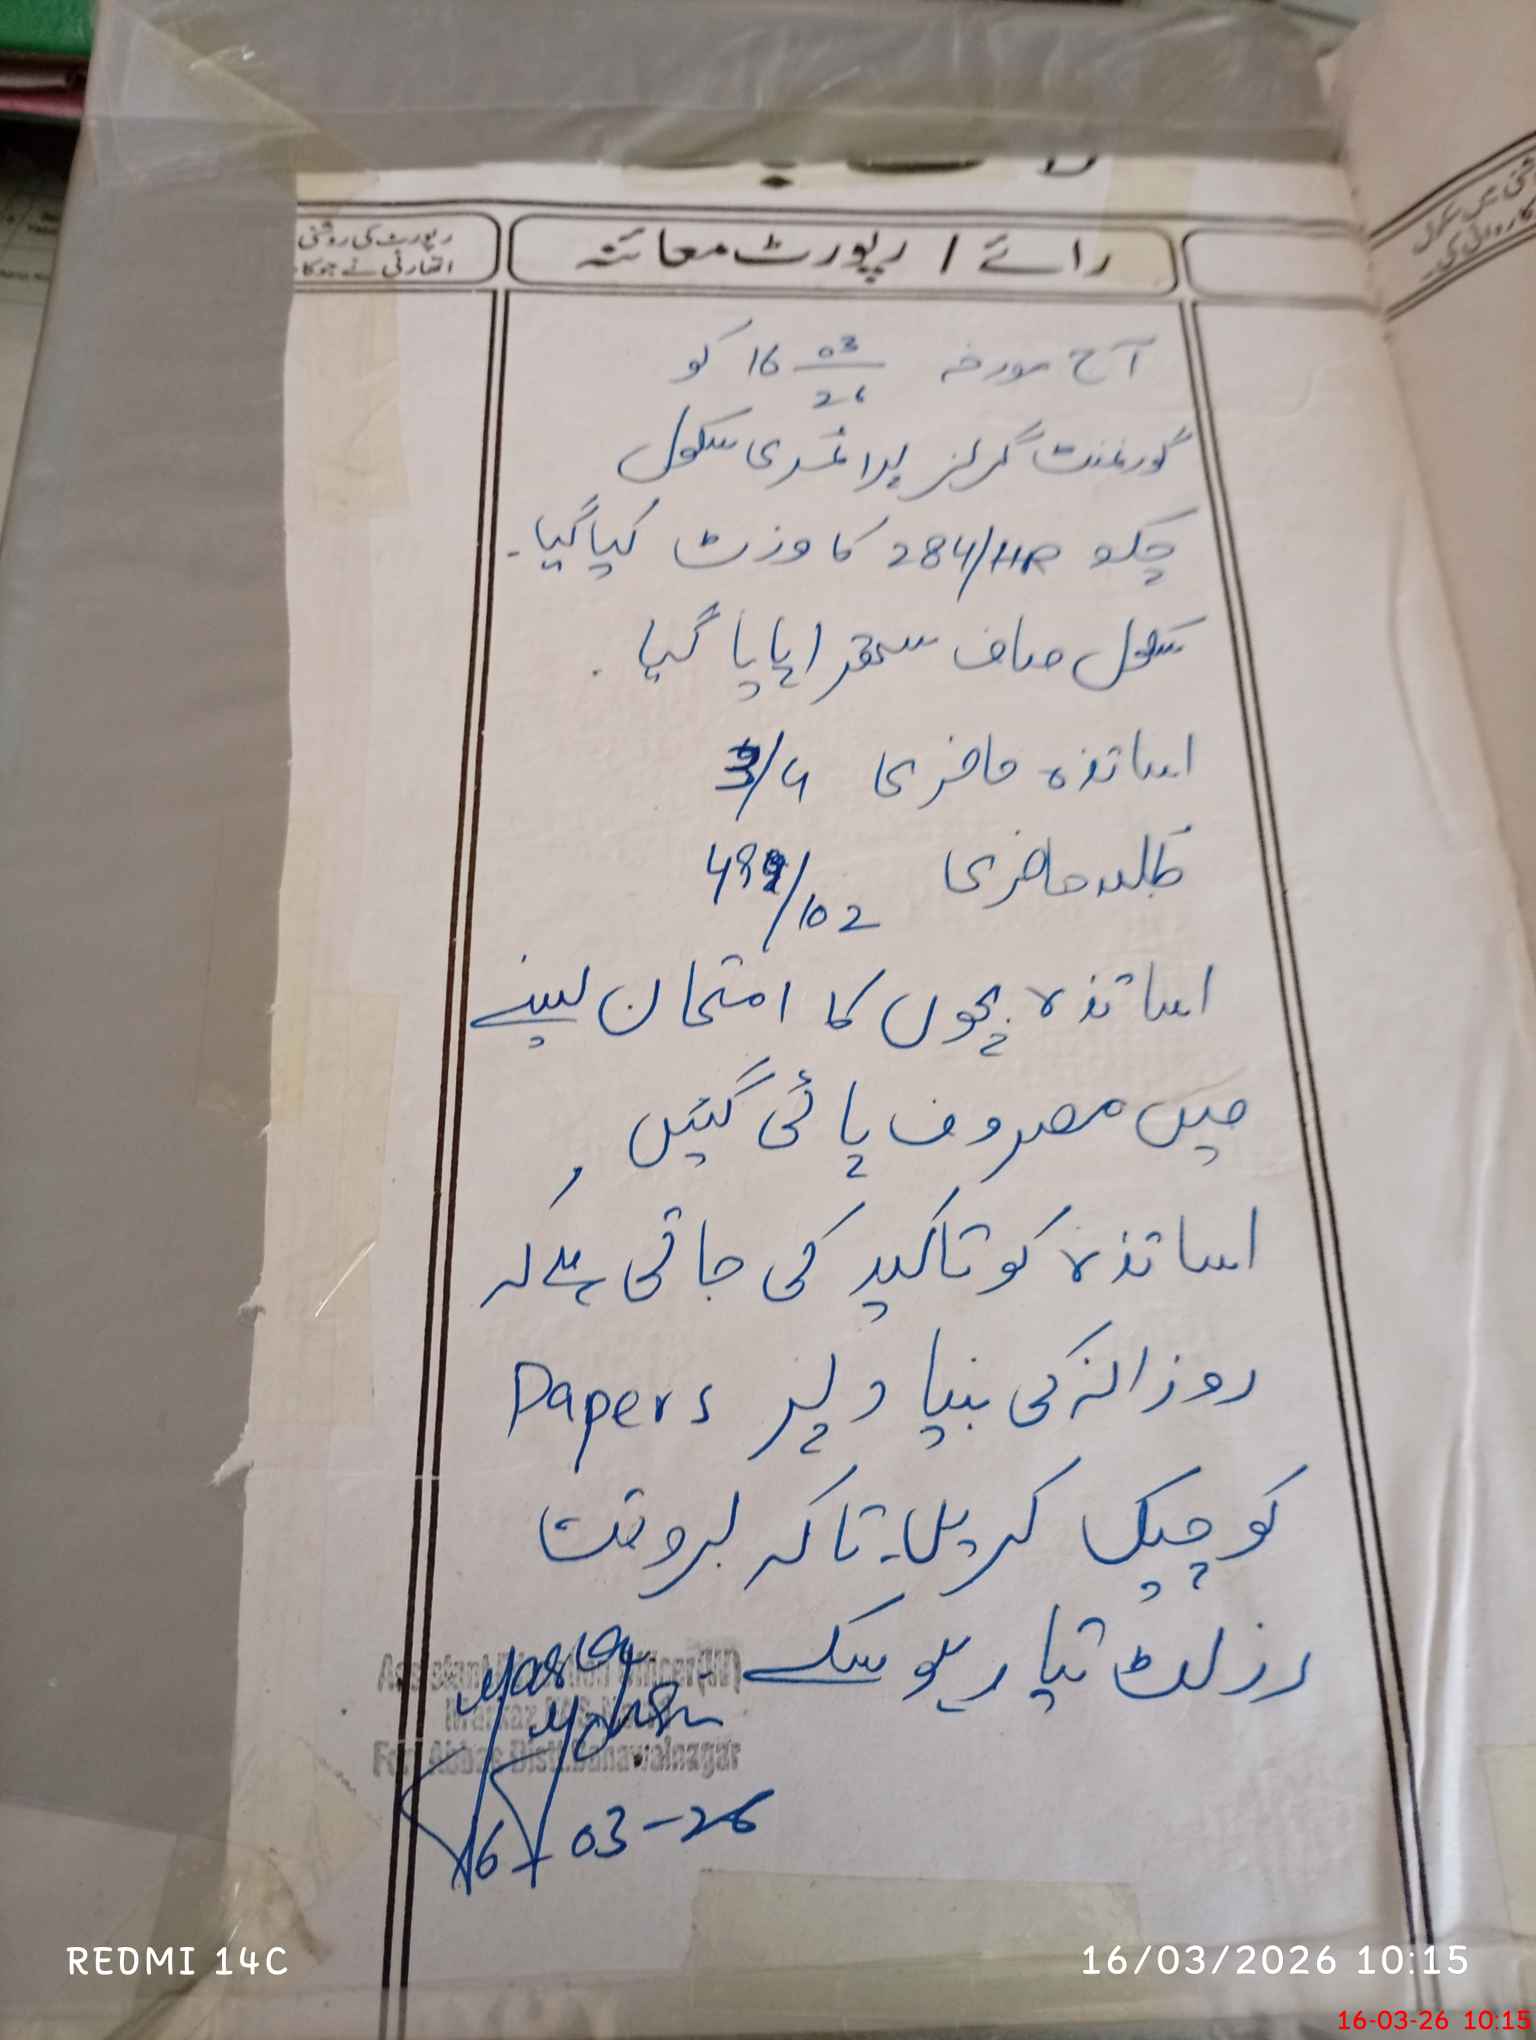 رپورٹ کی روشنی
رائے / رپورٹ معائنہ
آج مورخہ 16 03/26 کو
گورنمنٹ گرلز پرائمری سکول
چک 284/HR کا وزٹ کیا گیا۔
سکول صاف ستھرا پایا گیا۔
اساتذہ حاضری 3/4
طلبہ حاضری /102
اساتذہ بچوں کا امتحان لینے
میں مصروف پائی گئیں
اساتذہ کو تاکید کی جاتی ہے کہ
روزانہ کی بنیاد پر Papers
کو چیک کریں۔ تاکہ بروقت
رزلٹ تیار ہو سکے۔
Assistant Education Officer(W)
Markaz
Fort Abbas Distt. Bahawalnagar
16-03-26
REDMI 14C
16/03/2026 10:15
16-03-26 10:15